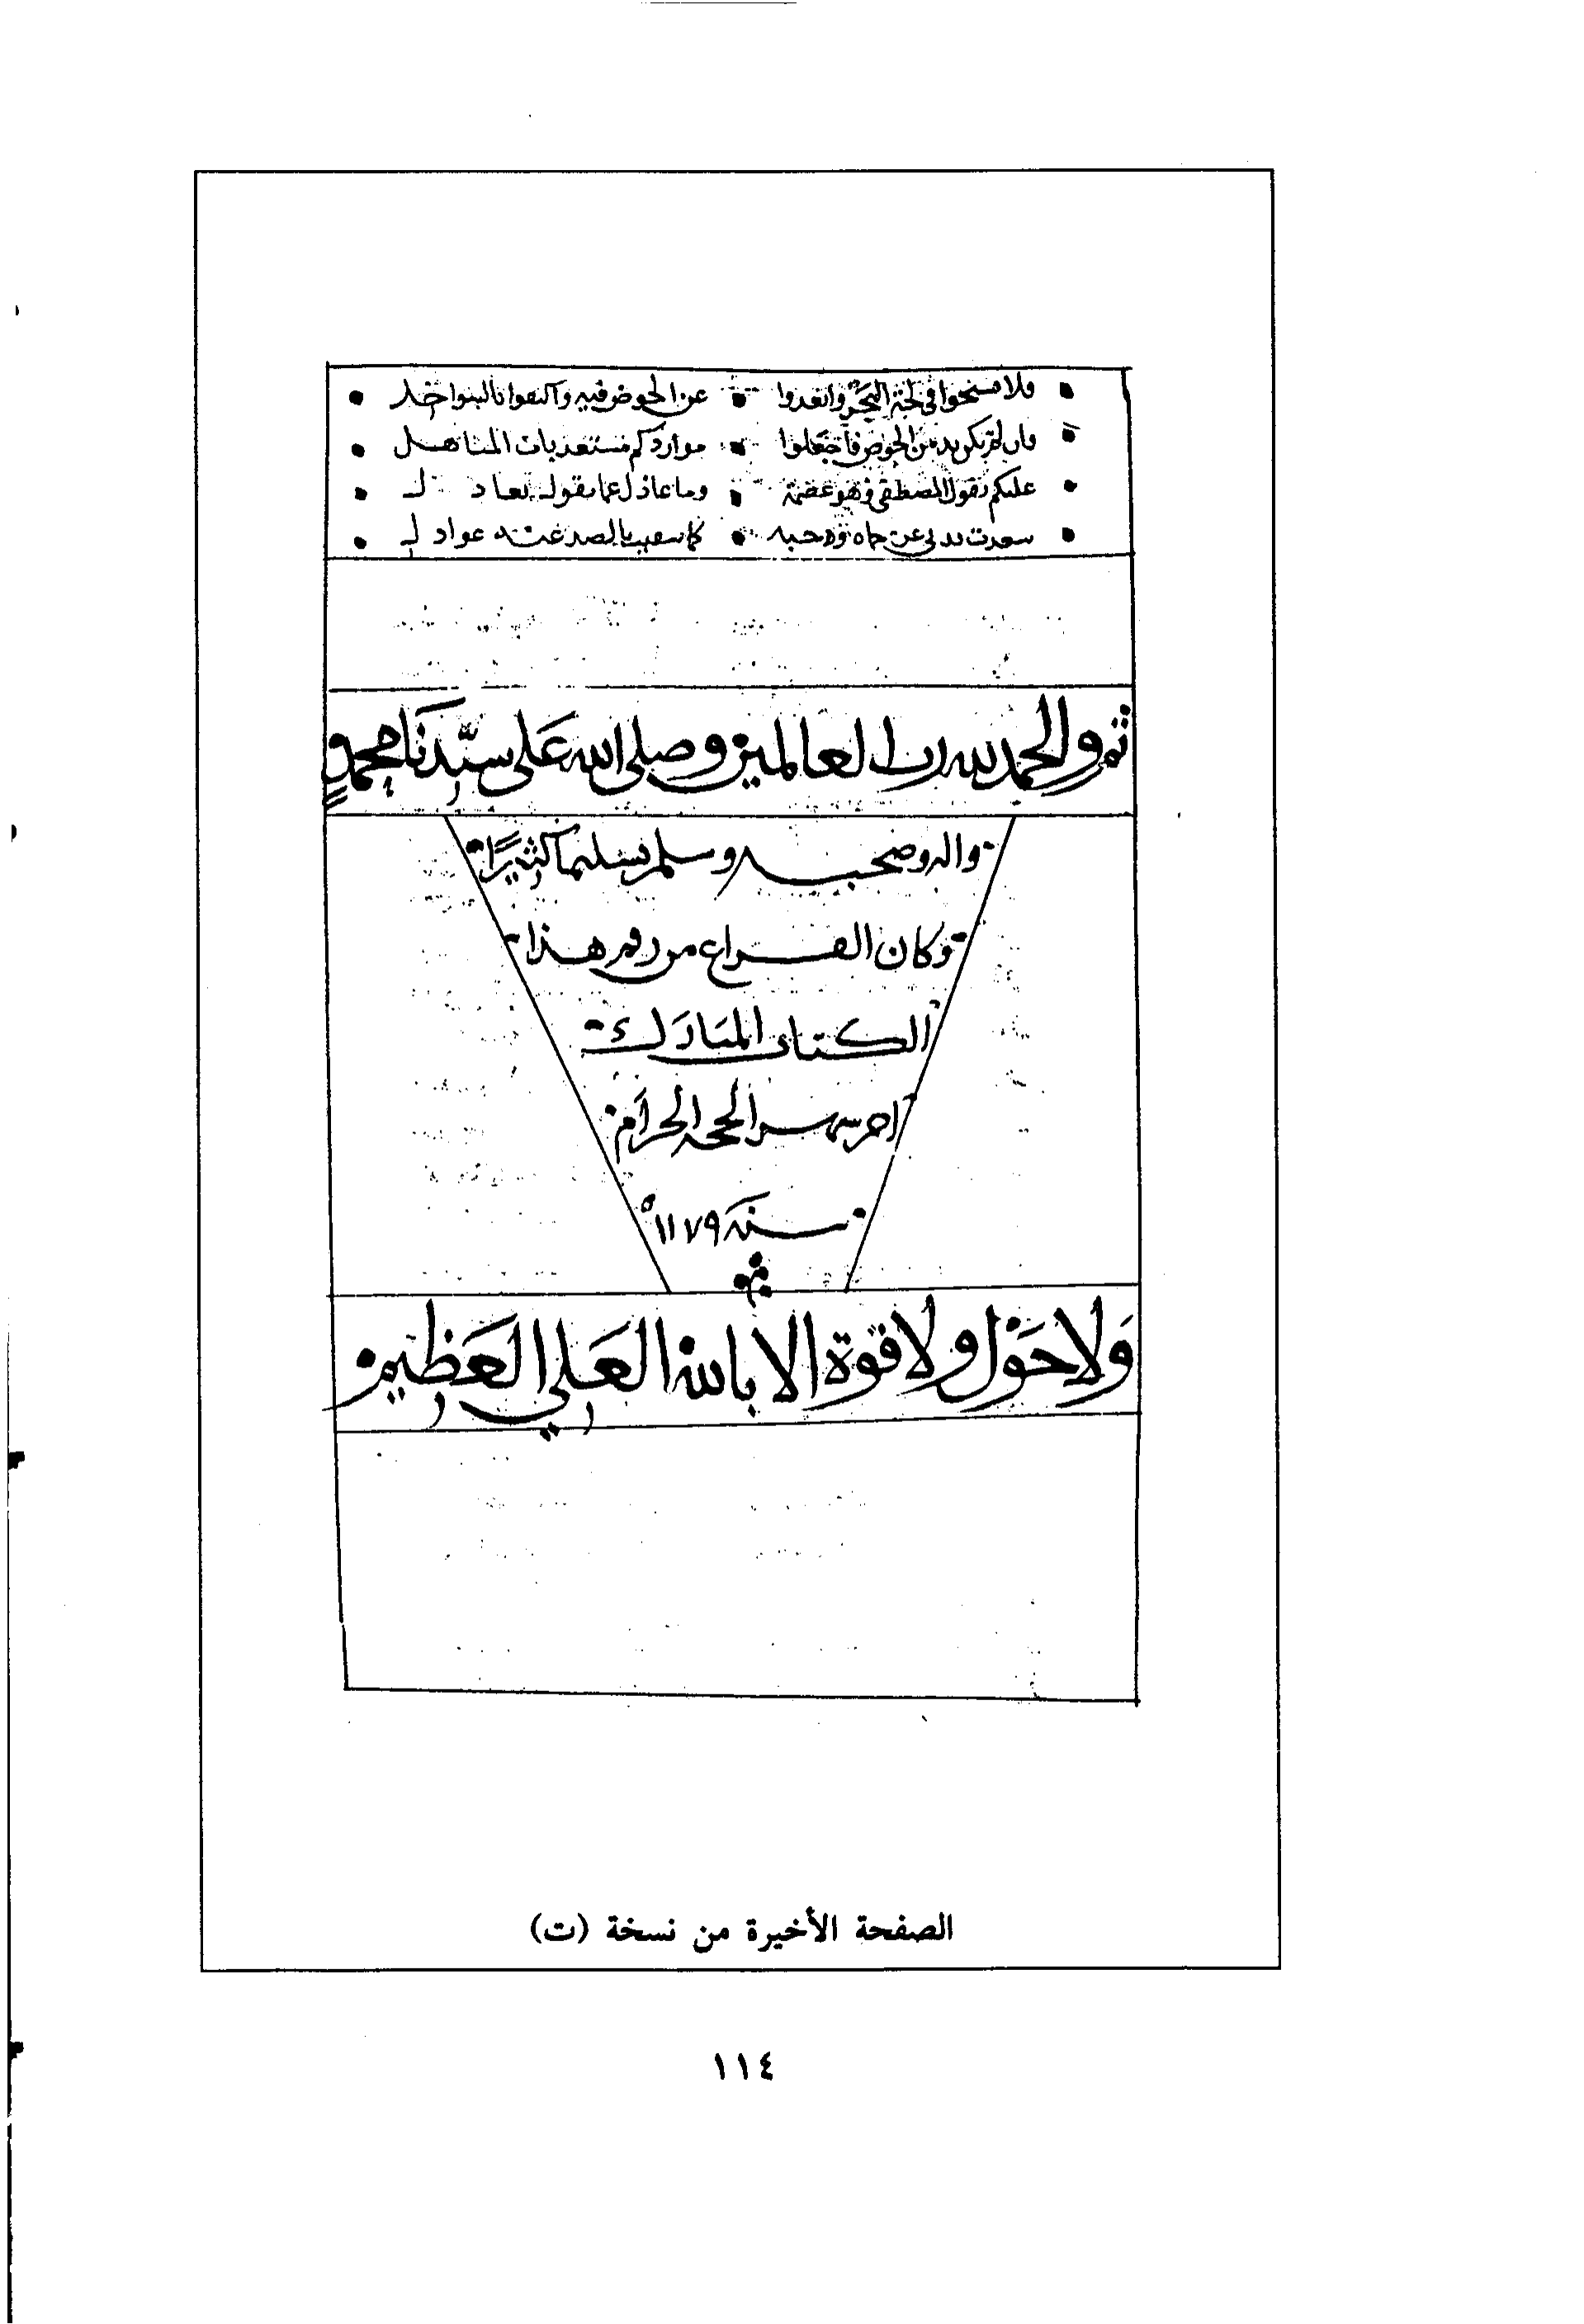 فلا تسبحوا في لجة البحر وابعدوا • عن الخوض فيه واكتفوا بالسواحل
فان لم يكن بد من الخوض فاجعلوا • مواردكم مستعذبات المناهل
عليكم بقول المصطفى فهو عصمة • وما عاذل عما يقول بعادل
سعدت عن حماه وحبه • كما عواذلي
تم والحمد لله رب العالمين وصلى الله على سيدنا محمد
واله وصحبه وسلم تسليما كثيرًا
وكان الفراغ من رقم هذا
الكتاب المبارك
اخر شهر الحجه الحرام
سنة ١١٧٩
ولا حول ولا قوة الا بالله العلي العظيم
الصفحة الأخيرة من نسخة (ت)
١١٤